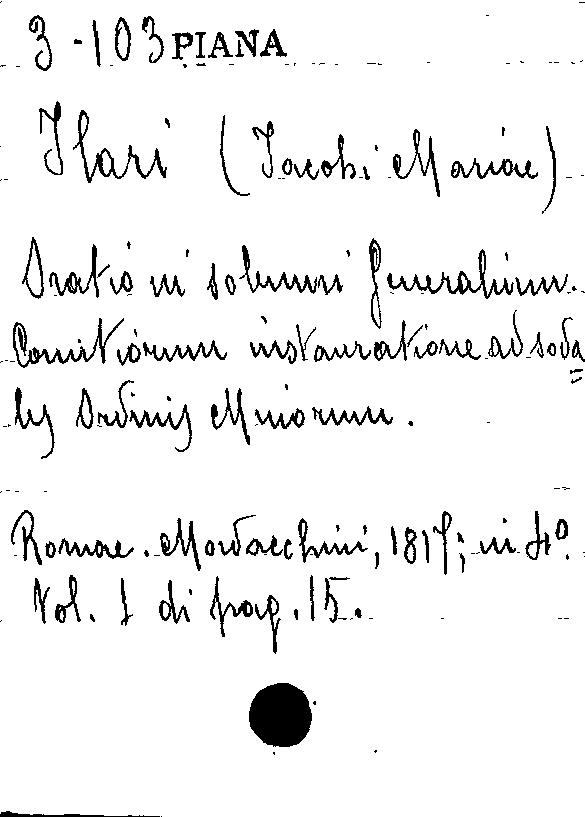 3-103 PIANA
Ilari (Jacobi Mariae)
Oratio in solemni Generalium
Comitiorum instauratione ad soda=
les Ordinis Minorum.
Romae. Mordacchini, 1817; in 4º.
Vol. 1 di pag. 15.